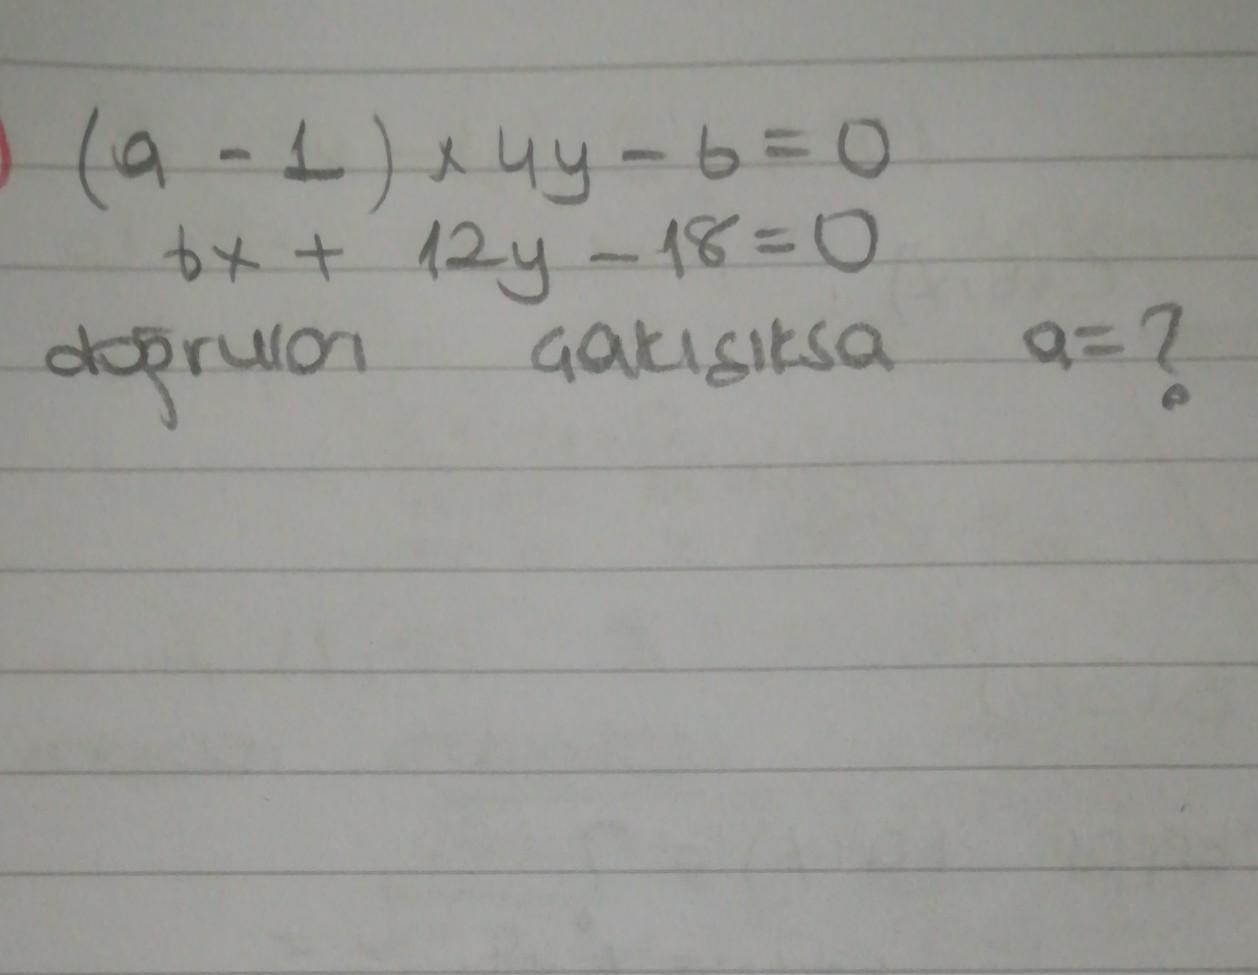 (a - 1) x 4y - 6 = 0
6x + 12y - 18 = 0
doğruları çakışıksa a = ?